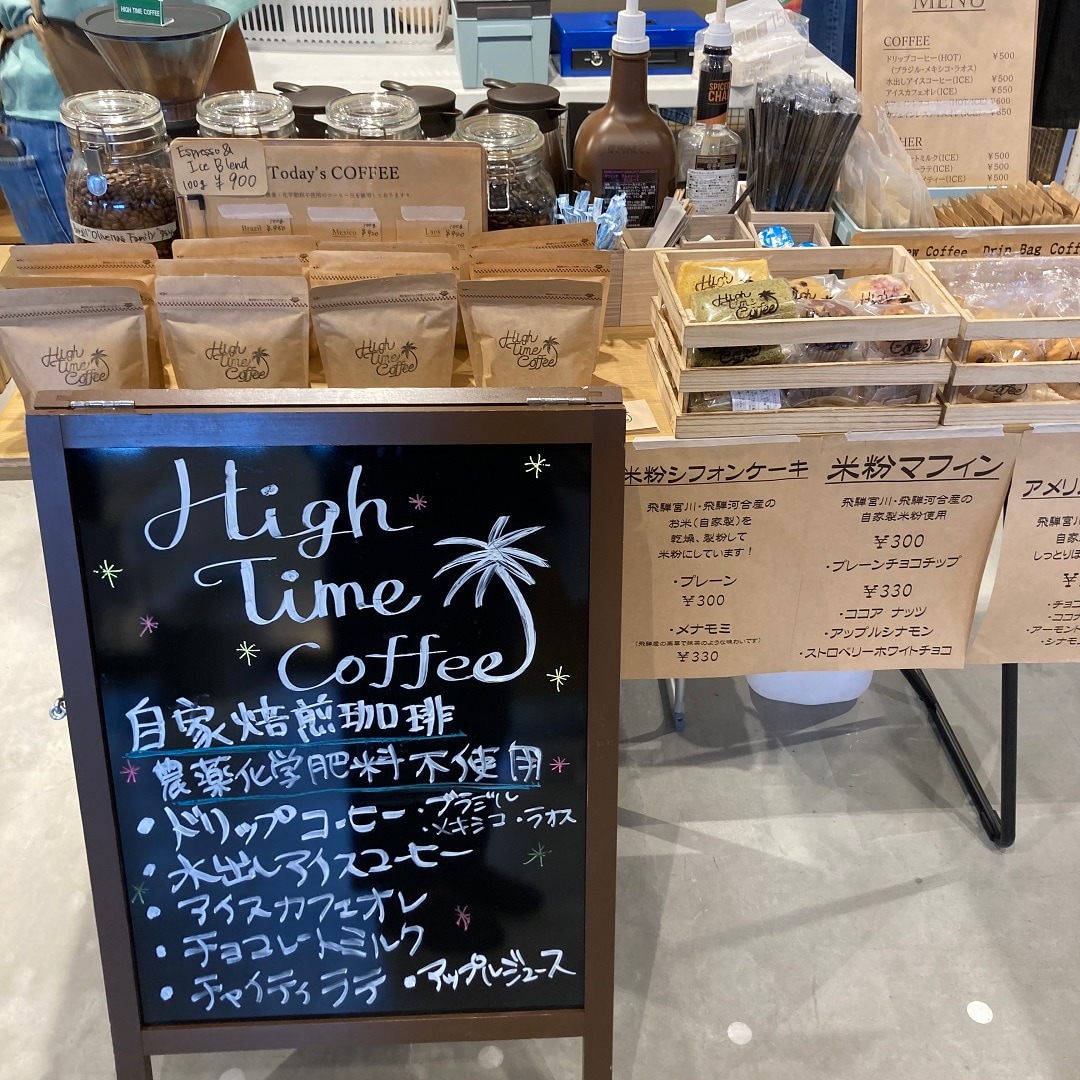 HIGH TIME COFFEE
MENU
COFFEE
ドリップコーヒー(HOT) ¥500
(ブラジル・メキシコ・ラオス)
水出しアイスコーヒー(ICE) ¥500
アイスカフェオレ(ICE) ¥550
¥600
¥500
¥500
Espresso &
Ice Blend
100g ¥900
Today's COFFEE
Brazil
Mexico
Laos
Drip Bag
High
Time
Coffee
High
Time
Coffee
High
Time
Coffee
High
Time
Coffee
High
Time
Coffee
自家焙煎珈琲
農薬化学肥料不使用
・ドリップコーヒー ・ブラジル
・メキシコ ・ラオス
・水出しアイスコーヒー
・アイスカフェオレ
・チョコレートミルク
・チャイティラテ ・アップルジュース
米粉シフォンケーキ
飛騨宮川・飛騨河合産の
お米(自家製)を
乾燥、製粉して
米粉にしています！
・プレーン
¥300
・メナモミ
(飛騨産の薬草で抹茶のような味わいです)
¥330
米粉マフィン
飛騨宮川・飛騨河合産の
自家製米粉使用
¥300
・プレーンチョコチップ
¥330
・ココア ナッツ
・アップルシナモン
・ストロベリーホワイトチョコ
アメリ